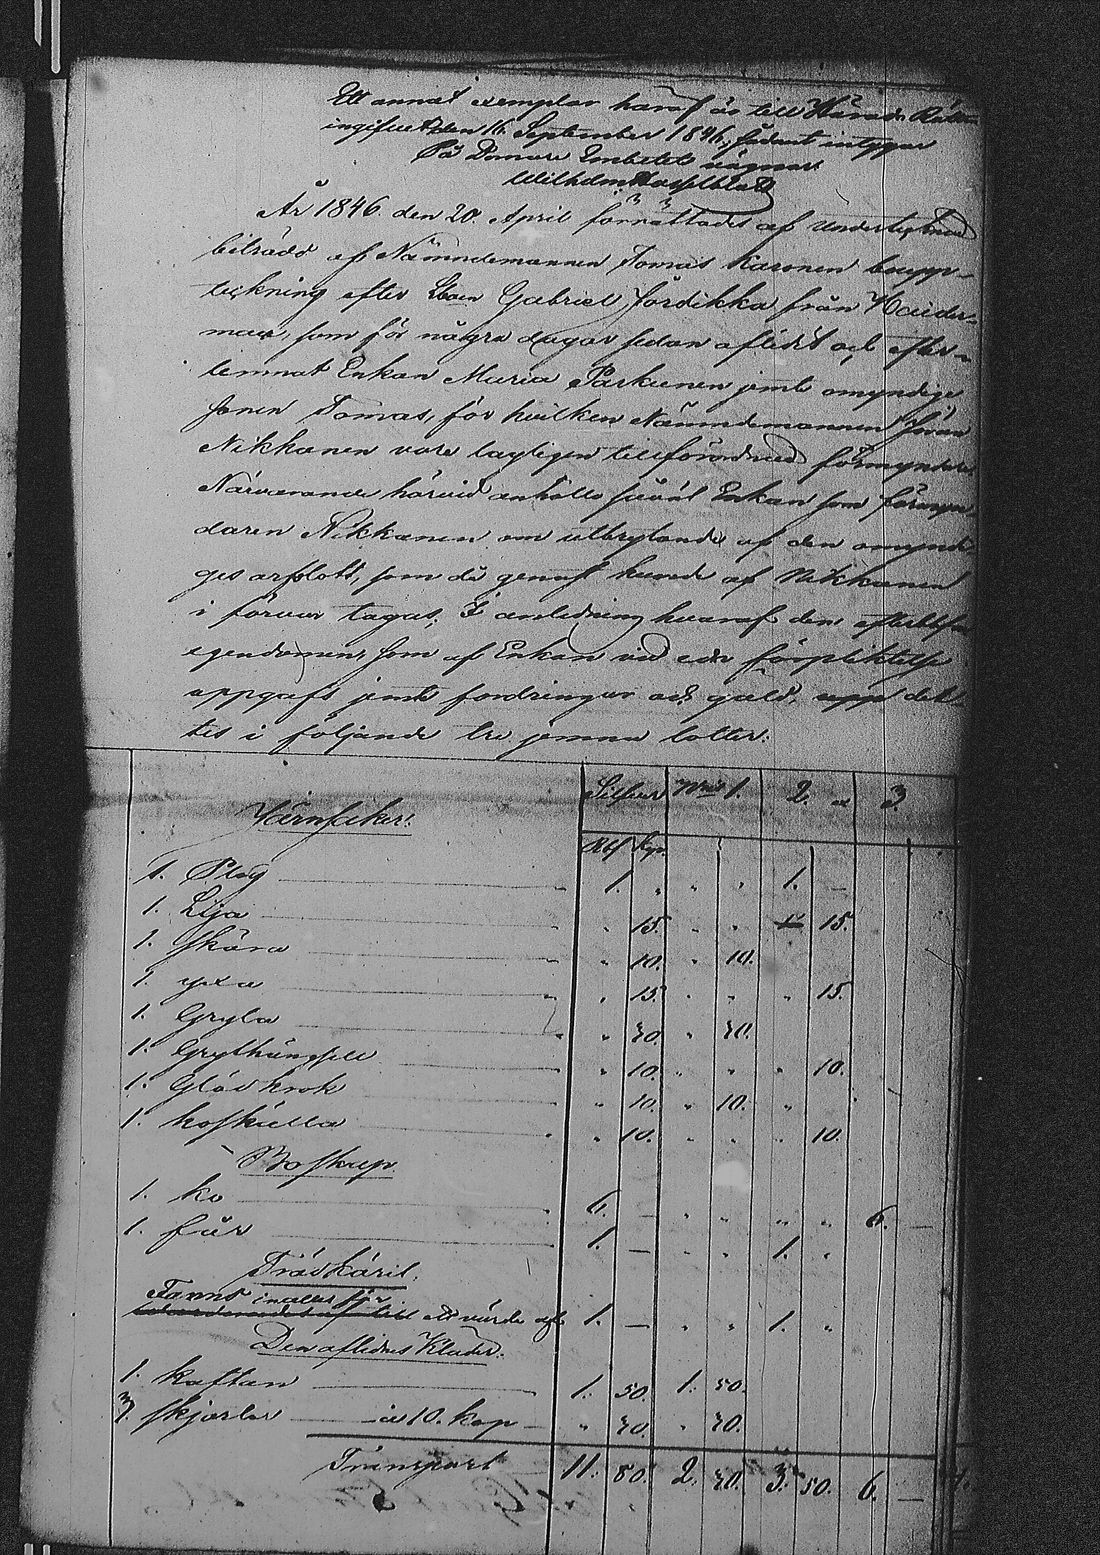 Ett annat exemplar häraf är till Härads Rätten
ingifvet den 16 September 1846, sådant intygar
På Domare Embetets vägnar
Wilhelm Hasselblatt
År 1846 den 20 April förrättades af undertecknad
biträdd af Nämndemannen Tomas Karonen boupp-
teckning efter Gabriel från
man, som för några dagar sedan aflidit och efter-
lemnat Enkan Maria Parkunen jemte omyndige
sonen Tomas, för hvilken Nämndemannen Johan
Nikkanen vore lagligen tillförordnad förmyndare
Närvarande härvid anhöllo såväl Enkan som förmyn-
daren Nikkanen om utbrytande af den omyndi-
ges arfslott, som då genast kunde af Nikkanen
i förvar tagas; I anledning hvaraf den
egendomen, som af Enkan vid eds förpliktelse
uppgafs jemte fordringar och gäld, upp del-
tes i följande tre jemna lotter:
Silfver Nris 1. 2. 3
Järnsaker. Rbl Kop.
1. Plog 1. " " " 1. –
1. Lija " 15. " " 15.
1. skära " 10. " 10.
1. yxa " 15. " " " 15.
1. Gryta " 70. " 70.
1. " 10. " " " 10.
1. Glöd krok " 10. " 10. "
1. koskälla " 10. " " " 10.
Boskap.
1. ko 6. – " " " " 6. –
1. får 1. – " " 1. "
Trädkäril.
värde af 1. – " " 1. "
Den aflidnes Kläder.
1. kaftan 1. 50. 1. 50.
7. skjortor à 10. kop " 70. " 70.
Transport 11. 80. 2. 70. 3. 50. 6. –